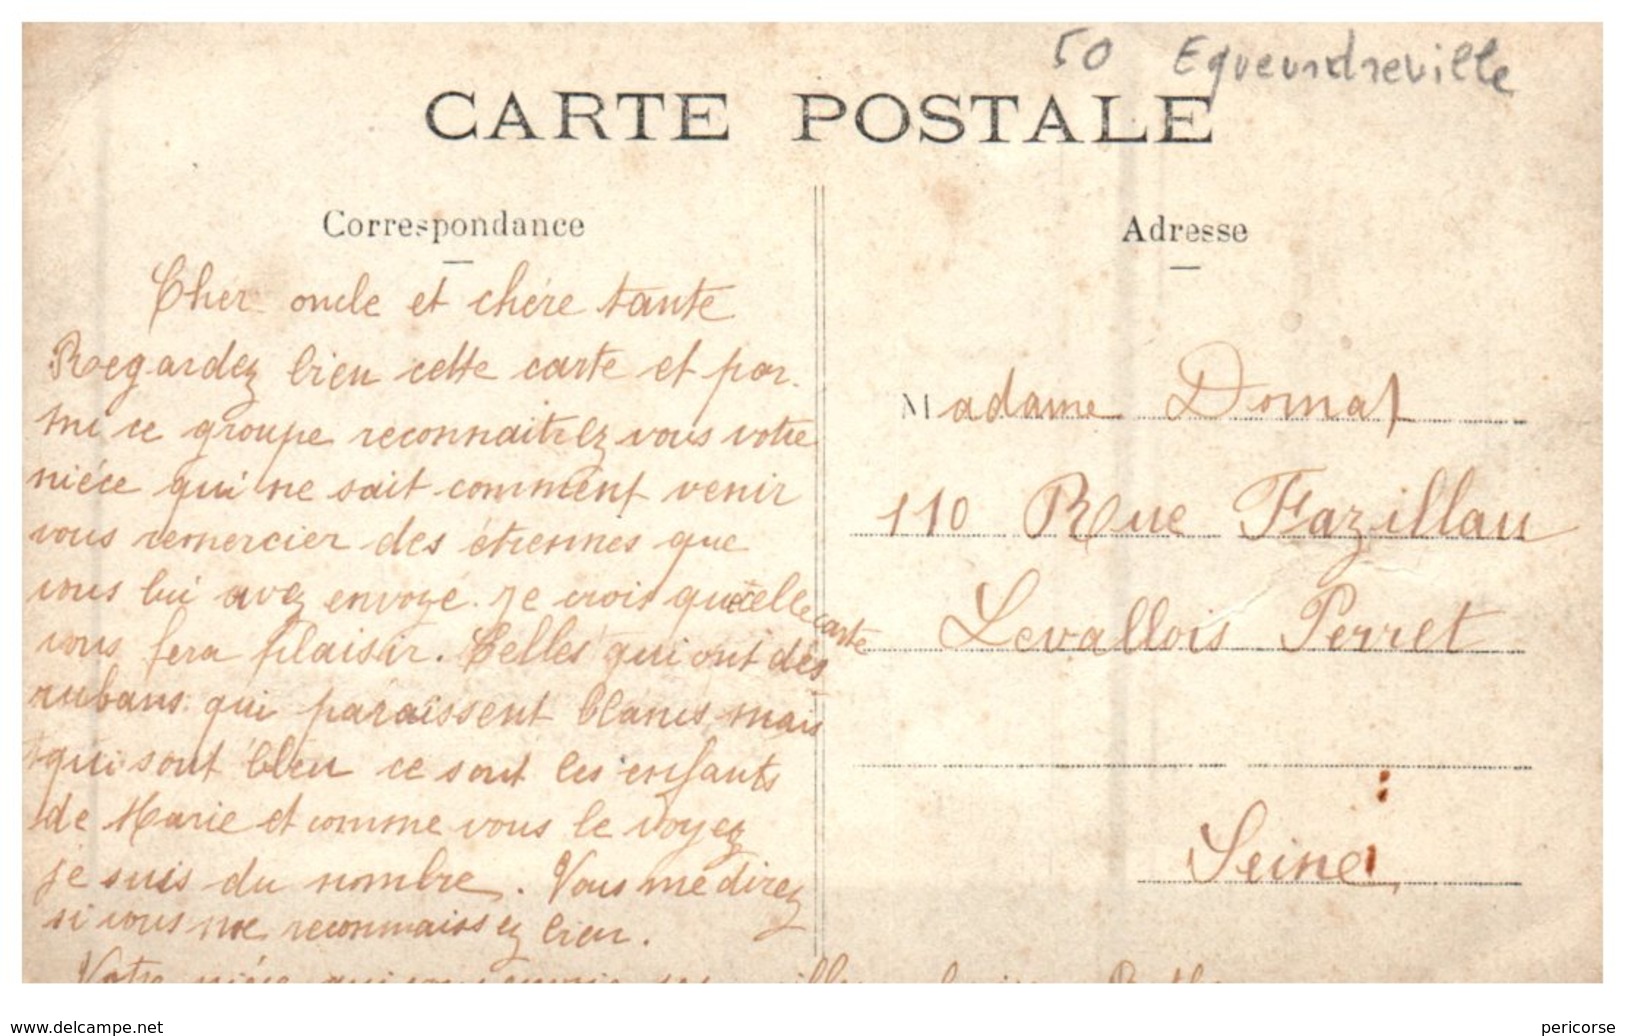 50 Equeurdreville
CARTE POSTALE
Correspondance
Cher oncle et chére tante
Regardez bien cette carte et par-
mi ce groupe reconnaitrez vous votre
niéce qui ne sait comment venir
vous remercier des étrennes que
vous lui avez envoyé. Je crois que celle carte
vous fera plaisir. Celles qui ont des
rubans qui paraissent blancs mais
qui sont bleu ce sont les enfants
de Marie et comme vous le voyez
je suis du nombre. Vous me direz
si vous me reconnaissez bien.
Votre niéce qui vous envoie ses
Adresse
Madame Domat
110 Rue Fazillau
Levallois Perret
Seine
www.delcampe.net
pericorse